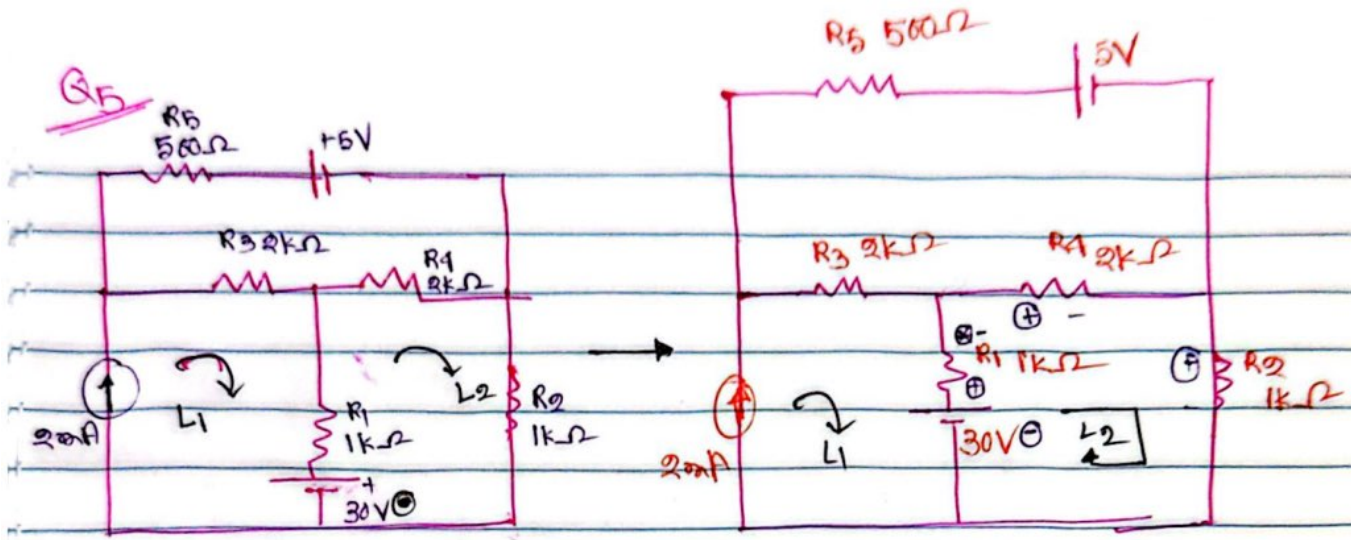 Q5
R5
500Ω
+5V
R3 2kΩ
R4
2kΩ
L1
L2
R1
1kΩ
R2
1kΩ
2mA
+
30V⊖
R5 500Ω
5V
R3 2kΩ
R4 2kΩ
⊕ -
-
R1 1kΩ
⊕
⊕
R2
1kΩ
L1
30V⊖
L2
2mA